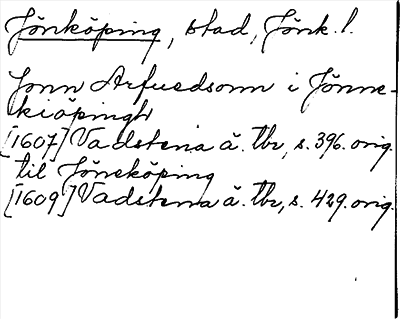 Jönköping, stad, Jönk. l.
Jonn Arfuedsonn i Jönne-
kiöpingh
[1607] Vadstena ä. tbr, s. 396. orig.
til Jöneköping
[1609] Vadstena ä. tbr, s. 429. orig.